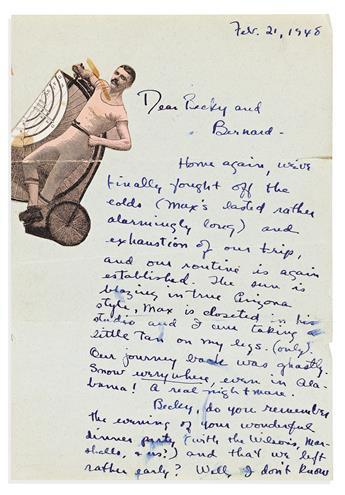 Feb. 21, 1948
Dear Becky and
Bernard -
Home again, we've
finally fought off the
colds (Max's lasted rather
alarmingly long) and
exhaustion of our trip,
and our routine is again
established. The sun is
blazing in true Arizona
style, Max is closeted in his
studio and I am taking a
little tan on my legs. (only)
Our journey back was ghastly.
Snow everywhere, even in Ala-
bama! A real nightmare.
Becky, do you remember
the evening of your wonderful
dinner party (with the Wilsons, Mar-
shalls, & us?) and that we left
rather early? Well, I don't know